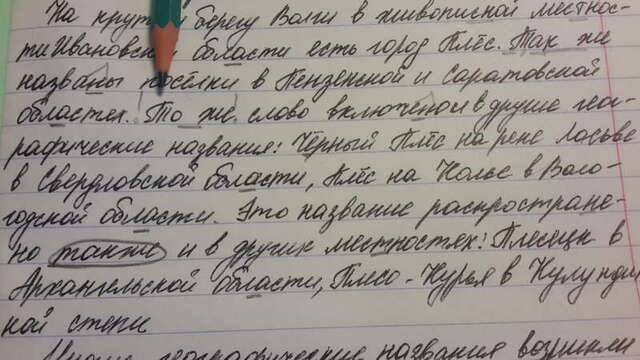 На крутом берегу Волги в живописной местнос-
ти Ивановской области есть город Плёс. Так же
названы посёлки в Пензенской и Саратовской
областях. То же слово включено и в другие гео-
графические названия: Чёрный Плёс на реке Лосьве
в Свердловской области, Плёс на Колье в Воло-
годской области. Это название распростране-
но также и в других местностях: Плесецк в
Архангельской области, Плесо-Курья в Кулундин
ной степи
географические названия возникли